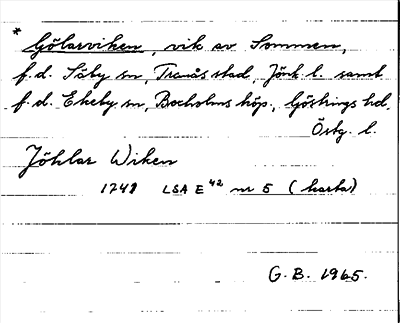 * Gölarviken, vik av Sommen,
f.d. Säby sn, Tranås stad, Jönk. l. samt
f.d. Ekeby sn, Boxholms köp., Göstrings hd,
Östg. l.
Jöhlar Wiken
1741 LSA E 42 nr 5 (karta)
G. B. 1965.